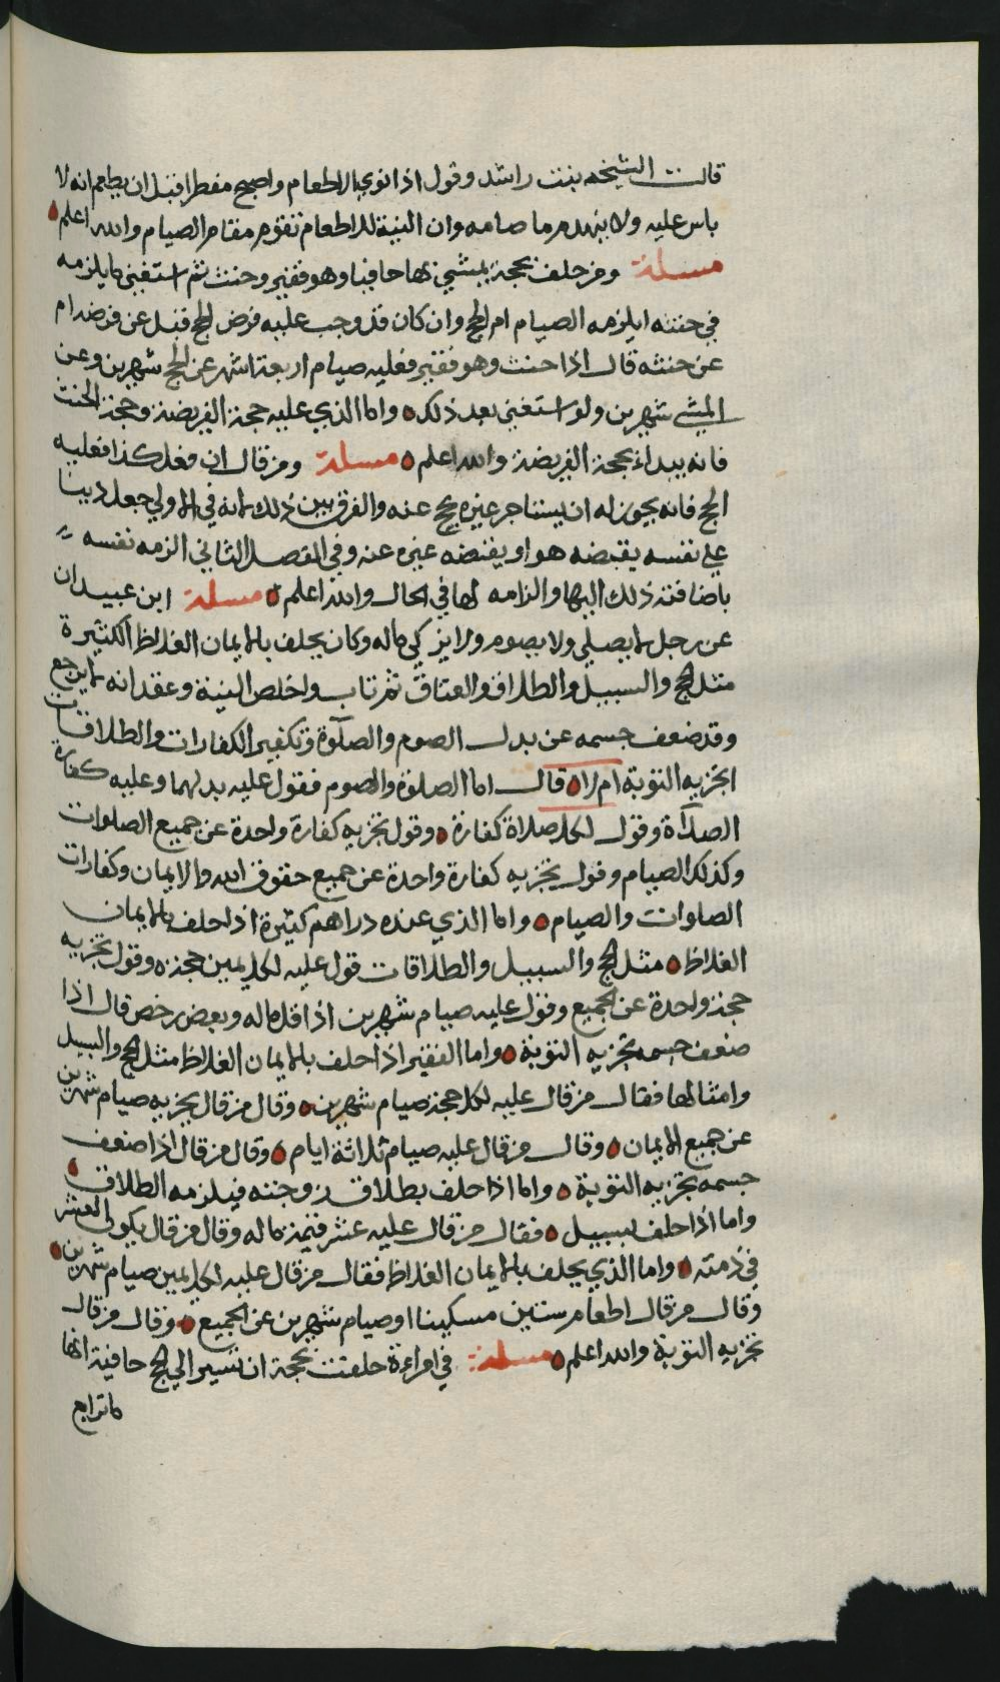 قالت الشيخه بنت راشد وقول اذا نوي بالاطعام واصبح مفطرا قبل ان يطعم انه لا
باس عليه ولا ينهدم ما صامه وان النية للاطعام تقوم مقام الصيام والله اعلم
مسلة ومن حلف بحجة يمشي بها حافيا وهو فقير وحنث ثم استغني ما يلزمه
في حنثه ايلزمه الصيام ام الحج وان كان قد وجب عليه فرض الحج قبل عن فرضه ام
عن حنثه قال اذا حنث وهو فقير فعليه صيام اربعة اشهر عن الحج شهرين وعن
المشي شهرين ولو استغني بعد ذلك واما الذي عليه حجة الفريضة وحجة الحنث
فانه يبداء بحجة الفريضة والله اعلم مسلة ومن قال ان فعل كذا فعليه
الحج فانه يجوز له ان يستاجر غيره يحج عنه والفرق بين ذلك لانه في الاولي جعل دينا
علي نفسه يقبضه هو او يقبضه غيره عنه وفي الفصل الثاني الزمه نفسه
باضافته ذلك اليها والزامه لها في الحال والله اعلم مسلة ابن عبيدان
عن رجل لا يصلي ولا يصوم ولا يزكي ماله وكان يحلف بالايمان الغلاظ الكثيرة
مثل الحج والسبيل والطلاق والعتاق ثم تاب واخلص النية وعقد انه لا يرجع
وقد ضعف جسمه عن بدل الصوم والصلوة وتكفير الكفارات والطلاقات
اتجزيه التوبة ام لا قال اما الصلوة والصوم فقول عليه بدلهما وعليه كفارة
الصلاة وقول لكل صلاة كفارة وقول تجزيه كفارة واحدة عن جميع الصلوات
وكذلك الصيام وقول تجزيه كفارة واحدة عن جميع حقوق الله والايمان وكفارات
الصلوات والصيام واما الذي عنده دراهم كثيرة اذا حلف بالايمان
الغلاظ مثل الحج والسبيل والطلاقات قول عليه لكل يمين حجة وقول تجزيه
حجة واحدة عن الجميع وقول عليه صيام شهرين اذا قل ماله وبعض رخص قال اذا
ضعف جسمه تجزيه التوبة واما الفقير اذا حلف بالايمان الغلاظ مثل الحج والسبيل
وامثالها فقال من قال عليه لكل حجة صيام شهرين وقال من قال يجزيه صيام شهرين
عن جميع الايمان وقال من قال عليه صيام ثلاثة ايام وقال من قال اذا ضعف
جسمه تجزيه التوبة واما اذا حلف بطلاق زوجته فيلزمه الطلاق
واما اذا حلف بسبيل فقال من قال عليه عشر قيمة ماله وقال من قال يكون العشر
في ذمته واما الذي يحلف بالايمان الغلاظ فقال من قال عليه لكل يمين صيام شهرين
وقال من قال اطعام ستين مسكينا او صيام شهرين عن الجميع وقال من قال
تجزيه التوبة والله اعلم مسلة في امراءة حلفت بحجة ان تسير الي الحج حافية انها
ما تراجع